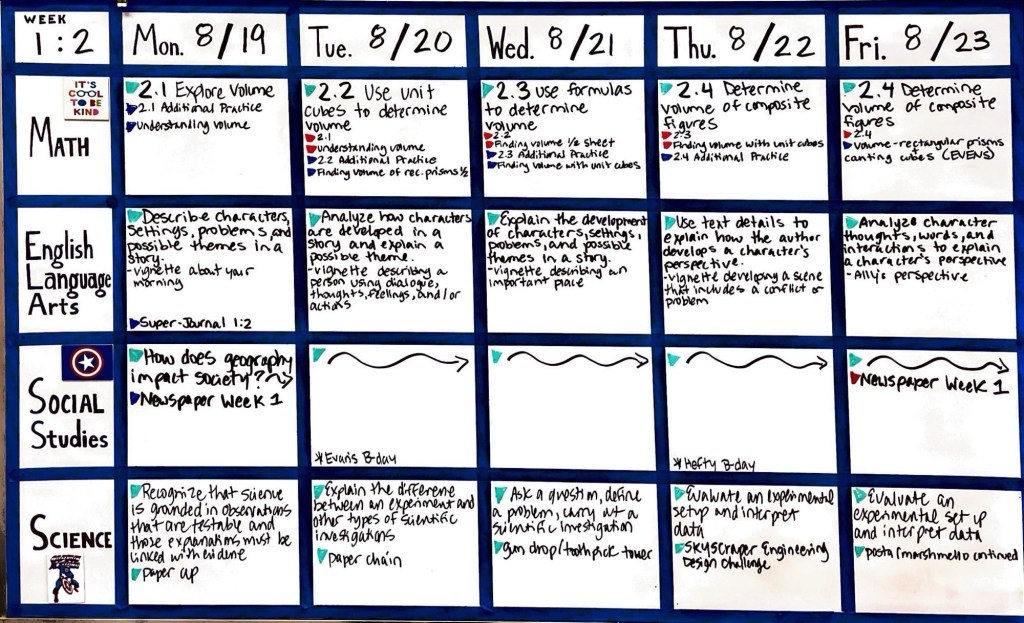 WEEK
1:2
Mon. 8/19
Tue. 8/20
Wed. 8/21
Thu. 8/22
Fri. 8/23
IT'S
COOL
TO BE
KIND
MATH
2.1 Explore Volume
2.1 Additional Practice
understanding volume
2.2 Use unit
cubes to determine
volume
2.1
understanding volume
2.2 Additional Practice
Finding volume of rec. prisms ½
2.3 use formulas
to determine
volume
2.2
Finding volume ½ sheet
2.3 Additional Practice
Finding volume with unit cubes
2.4 Determine
volume of composite
figures
2.3
Finding volume with unit cubes
2.4 Additional Practice
2.4 Determine
volume of composite
figures
2.4
volume-rectangular prisms
conting cubes (EVENS)
English
Language
Arts
Describe characters,
settings, problems, and
possible themes in a
story.
-vignette about your
morning
Super-Journal 1:2
Analyze how characters
are developed in a
story and explain a
possible theme.
-vignette describing a
person using dialogue,
thoughts, feelings, and/or
actions
Explain the development
of characters, settings,
probems, and possible
themes in a story.
-vignette describing an
important place
Use text details to
explain how the author
develops a character's
perspective.
-vignette developing a scene
that includes a conflict or
problem
Analyze character
thoughts, words, and
interactions to explain
a character's perspective
-Ally's perspective
SOCIAL
Studies
How does geography
impact society?
Newspaper Week 1
*Evan's B-day
*Hefty B-day
Newspaper Week 1
SCIENCE
Recognize that science
is grounded in observations
that are testable and
those explanations must be
linked with evidence
paper cup
Explain the difference
between an experiment and
other types of scientific
investigations
paper chain
Ask a question, define
a problem, carry out a
scientific investigation
gum drop/toothpick tower
Evaluate an experimental
setup and interpret
data
Skyscraper Engineering
Design Challenge
Evaluate an
experimental set up
and interpret data
pasta/marshmello continued